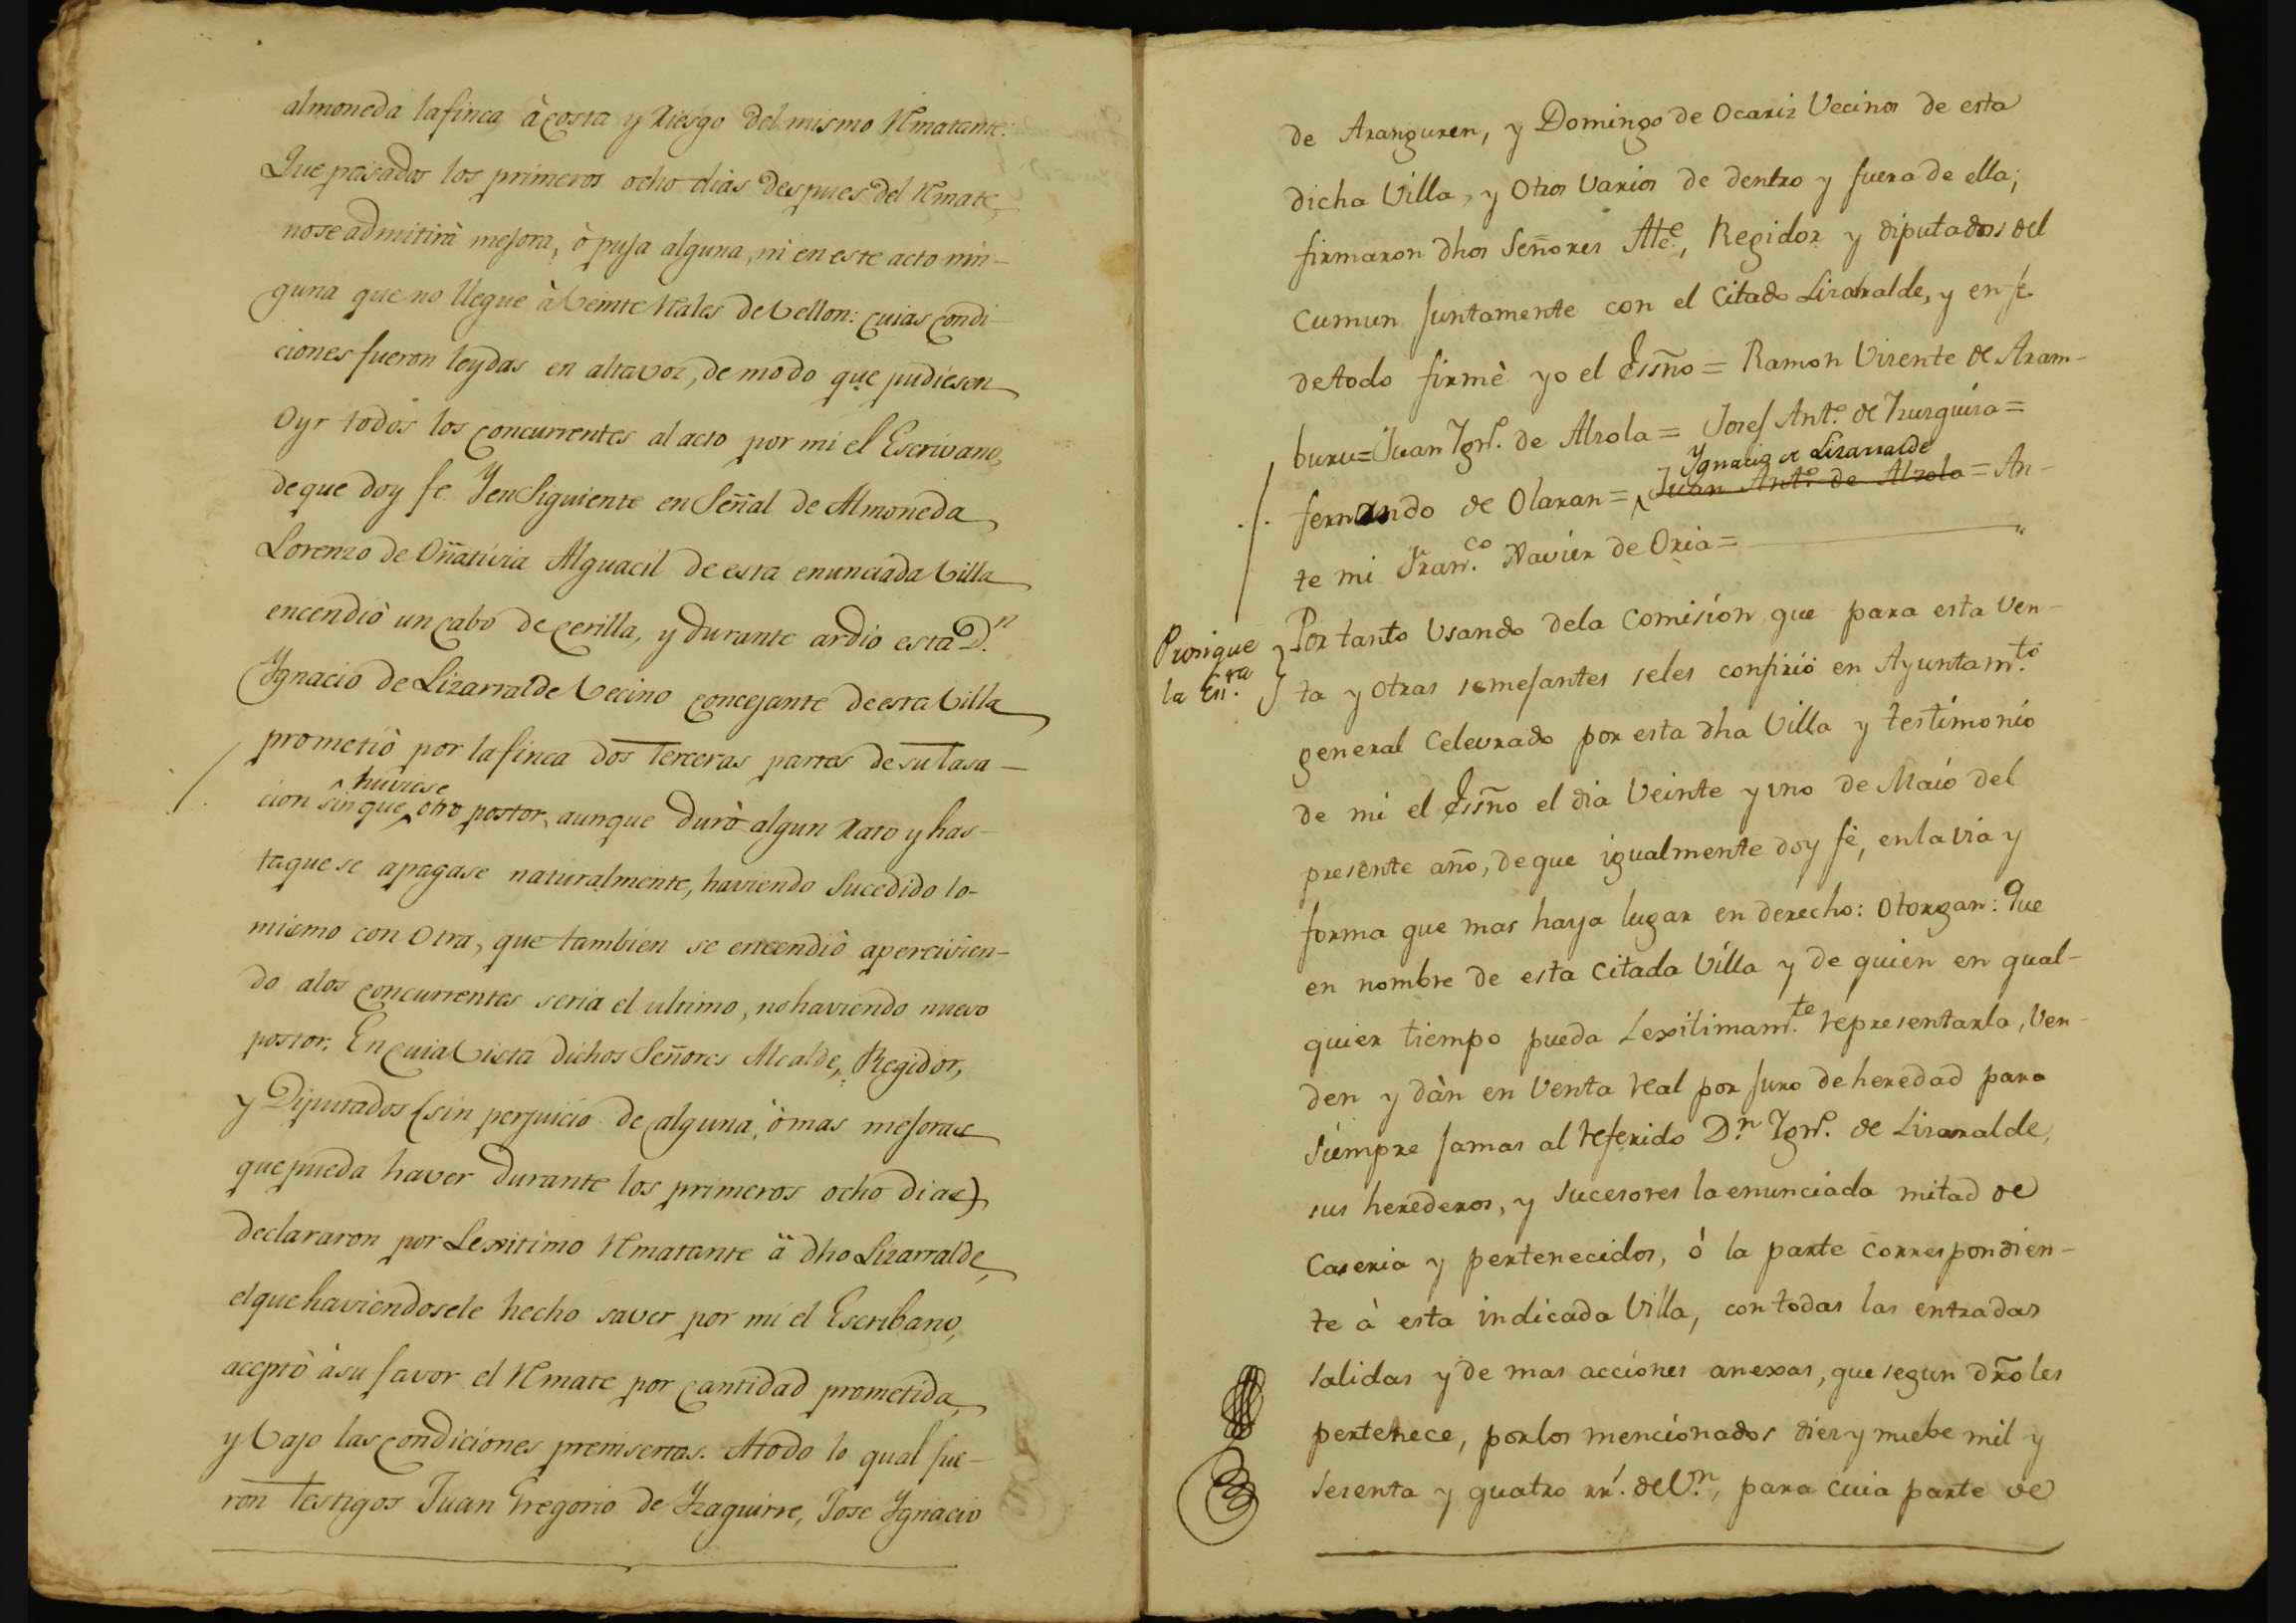 almoneda la finca à costa y riesgo del mismo Rmatante:
Que pasados los primeros ocho dias despues del Rmate,
no se admitirà mejora, ò puja alguna, ni en este acto nin-
guna que no llegue à Veinte Rales de Vellon: cuias condi-
ciones fueron leydas en alta voz, de modo que pudiesen
Oyr todos los concurrentes al acto por mi el Escrivano,
de que doy fe. Y en Siguiente en Señal de Almoneda
Lorenzo de Oñativia Alguacil de esta enunciada Villa
encendiò un cabo de cerilla, y durante ardiò esta D.n
Ygnacio de Lizarralde Vecino concejante de esta Villa
prometiò por la finca dos Terceras partes de su Tasa-
huviese
cion sin que otro postor, aunque durò algun rato y has-
ta que se apagase naturalmente, haviendo Sucedido lo-
mismo con Otra, que tambien se encendiò apercivien-
do a los concurrentes seria el ultimo, no haviendo nuevo
postor. En cuia Vista dichos Señores Alcalde, Regidor,
y Diputados (sin perjuicio de alguna, ò mas mejoras
que pueda haver durante los primeros ocho dias)
declararon por Lexitimo Rmatante à dho Lizarralde,
el que haviendosele hecho saver por mi el Escribano,
aceptò à su favor el Rmate por cantidad prometida,
y Vajo las condiciones preinsertas. A todo lo qual fue-
ron Testigos Juan Gregorio de Yzaguirre, Jose Ygnacio
de Aranguren, y Domingo de Ocariz Vecinos de esta
dicha Villa, y Otros Varios de dentro y fuera de ella;
firmaron dhos Señores Alc.e, Regidor y diputados del
Cumun juntamente con el Citado Lizarralde, y en fe
de todo firmè yo el Essño = Ramon Vizente de Aram-
buru = Juan Ygn.o de Alzola = Josef Ant.o de Yzurguiza =
Ygnacio de Lizarralde
fernando de Olaran = Juan Ant.o de Alzola = An-
te mi Fran.co Xavier de Oria =
Prosigue
la Esr.ra
Por tanto Usando dela Comision que para esta Ven-
ta y Otras semejantes seles confirió en Ayuntam.to
general Celevrado por esta dha Villa y testimonio
de mi el Essño el dia Veinte y uno de Maio del
presente año, de que igualmente doy fè, en la via y
forma que mas haya lugar en derecho: Otorgan: Que
en nombre de esta Citada Villa y de quien en qual-
quier tiempo pueda Lexitimam.te representarla, Ven-
den y dàn en Venta real por juro de heredad para
Siempre jamas al referido D.n Ygn.o de Lizarralde,
sus herederos, y sucesores la enunciada mitad de
Caseria y pertenecidos, ó la parte Correspondien-
te à esta indicada Villa, con todas las entradas
salidas y de mas acciones anexas, que segun dr̃o les
pertenece, por los mencionados diez y nuebe mil y
sesenta y quatro rr.s de V.n, para cuia parte de